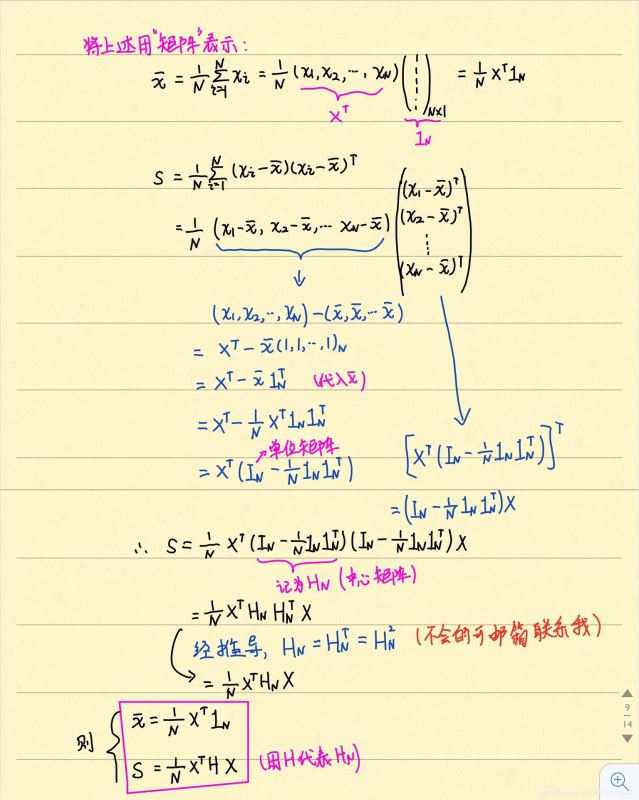 将上述用"矩阵"表示:
x̄ = 1/N ∑_{i=1}^{N} xᵢ = 1/N (x₁, x₂, ⋯, x_N) ( ⋮ )_{N×1} = 1/N Xᵀ 1_N
Xᵀ
1_N
S = 1/N ∑_{i=1}^{N} (xᵢ - x̄)(xᵢ - x̄)ᵀ
= 1/N (x₁ - x̄, x₂ - x̄, ⋯ x_N - x̄)
(x₁ - x̄)ᵀ
(x₂ - x̄)ᵀ
⋮
(x_N - x̄)ᵀ
(x₁, x₂, ⋯, x_N) - (x̄, x̄, ⋯ x̄)
= Xᵀ - x̄ (1, 1, ⋯, 1)_N
= Xᵀ - x̄ 1_Nᵀ (代入x̄)
= Xᵀ - 1/N Xᵀ 1_N 1_Nᵀ
单位矩阵
= Xᵀ (I_N - 1/N 1_N 1_Nᵀ)
[Xᵀ (I_N - 1/N 1_N 1_Nᵀ)]ᵀ
= (I_N - 1/N 1_N 1_Nᵀ) X
∴ S = 1/N Xᵀ (I_N - 1/N 1_N 1_Nᵀ) (I_N - 1/N 1_N 1_Nᵀ) X
记为H_N (中心矩阵)
= 1/N Xᵀ H_N H_Nᵀ X
经推导, H_N = H_Nᵀ = H_N² (不会的可邮箱联系我)
= 1/N Xᵀ H_N X
则
x̄ = 1/N Xᵀ 1_N
S = 1/N Xᵀ H X (用H代表H_N)
9
14